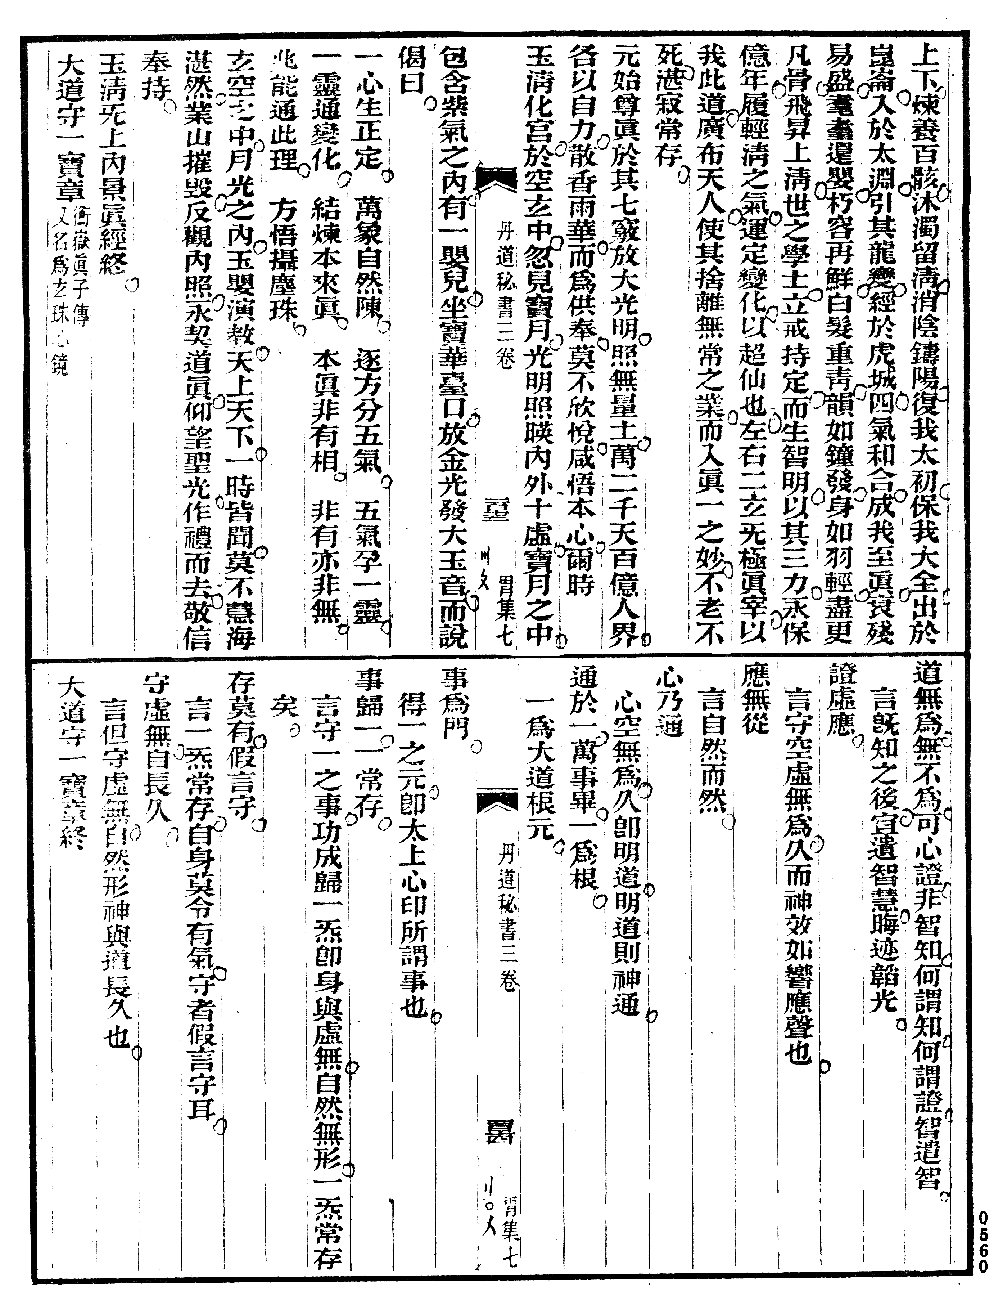 上下煉養百骸沐濁留淸消陰鑄陽復我太初保我大全出於
崑崙入於太淵引其龍變經於虎城四氣和合成我至眞衰殘
易盛耄耋還嬰朽容再鮮白髮重靑韻如鐘發身如羽輕盡更
凡骨飛昇上淸世之學士立戒持定而生智明以其三力永保
億年履輕淸之氣運定變化以超仙也左右二玄旡極眞宰以
我此道廣布天人使其捨離無常之業而入眞一之妙不老不
死湛寂常存
元始尊眞於其七竅放大光明照無量土萬二千天百億人界
各以自力散香雨華而爲供奉莫不欣悅咸悟本心爾時
玉淸化宮於空玄中忽見寶月光明照暎內外十虛寶月之中
丹道秘書三卷
胃集七
包含紫氣之內有一嬰兒坐寶華臺口放金光發大玉音而說
偈曰
一心生正定　萬象自然陳　逐方分五氣　五氣孕一靈
一靈通變化　結煉本來眞　本眞非有相　非有亦非無
兆能通此理　方悟攝塵珠
玄空之中月光之內玉嬰演敎天上天下一時皆聞莫不慧海
湛然業山摧毀反觀內照永契道眞仰望聖光作禮而去敬信
奉持
玉淸旡上內景眞經終
大道守一寶章衡嶽眞子傳又名爲玄珠心鏡
道無爲無不爲可心證非智知何謂知何謂證智遣智
言旣知之後宜遺智慧晦迹韜光
證虛應
言守空虛無爲久而神效如響應聲也
應無從
言自然而然
心乃通
心空無爲久卽明道明道則神通
通於一萬事畢一爲根
一爲大道根元
丹道秘書三卷
胃集七
事爲門
得一之元卽太上心印所謂事也
事歸一一常存
言守一之事功成歸一炁卽身與虛無自然無形一炁常存
矣
存莫有假言守
言一炁常存自身莫令有氣守者假言守耳
守虛無自長久
言但守虛無自然形神與道長久也
大道守一寶章終
0560